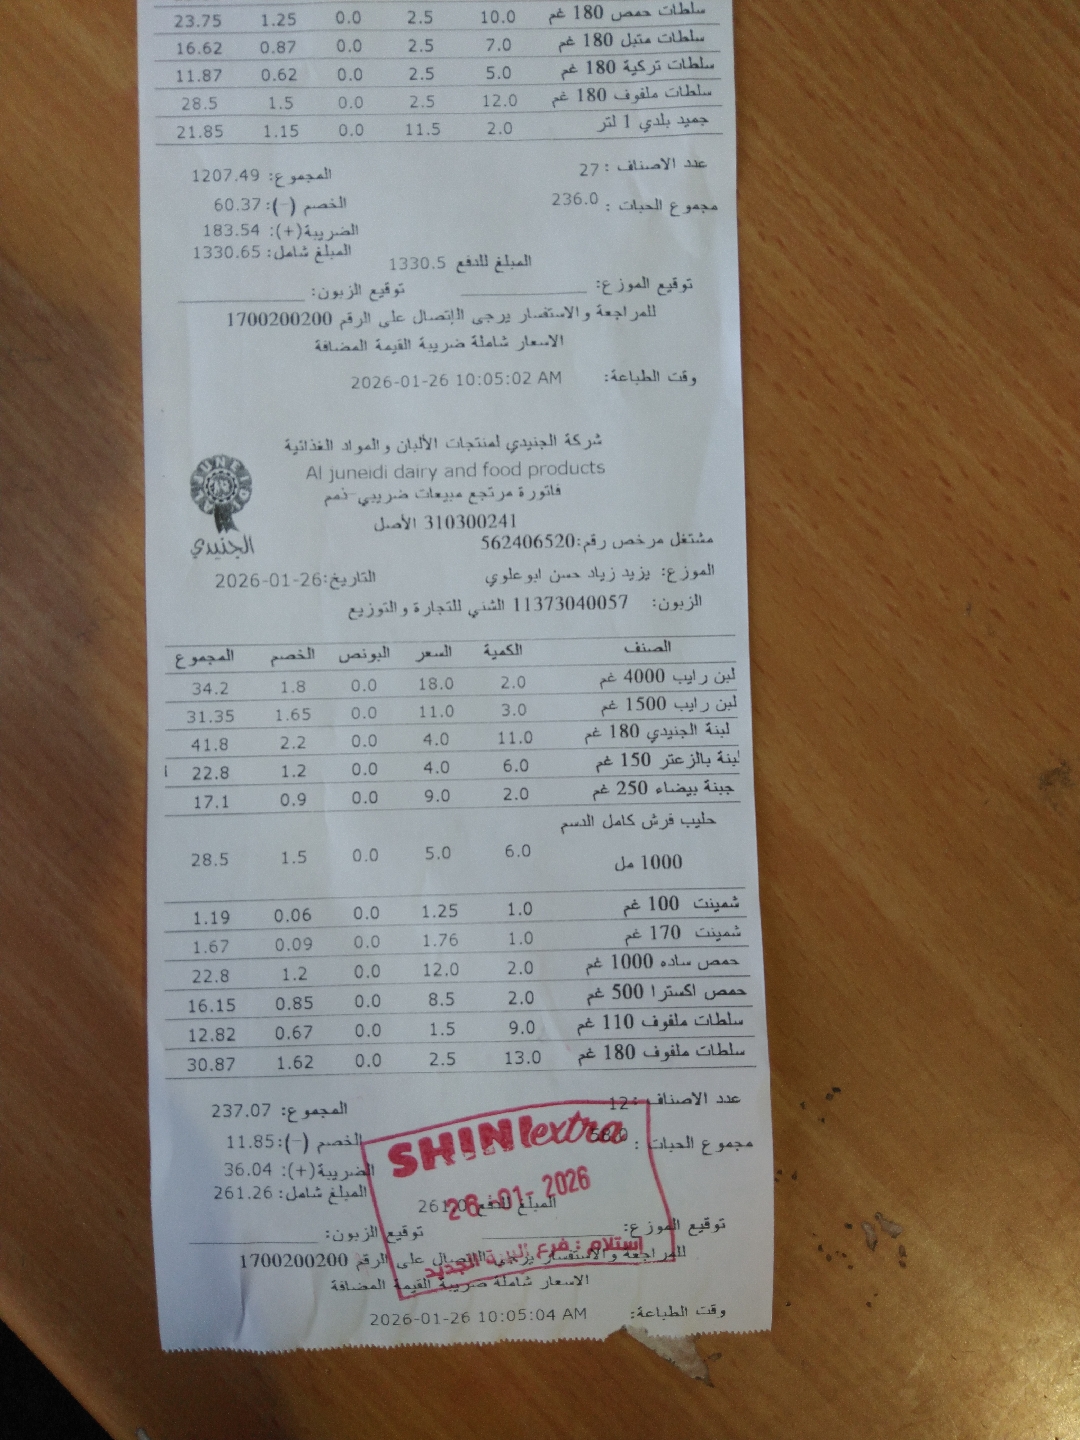 سلطات حمص 180 غم 10.0 2.5 0.0 1.25 23.75
سلطات متبل 180 غم 7.0 2.5 0.0 0.87 16.62
سلطات تركية 180 غم 5.0 2.5 0.0 0.62 11.87
سلطات ملفوف 180 غم 12.0 2.5 0.0 1.5 28.5
جميد بلدي 1 لتر 2.0 11.5 0.0 1.15 21.85
عدد الاصناف : 27 المجموع: 1207.49
مجموع الحبات : 236.0 الخصم (-): 60.37
الضريبة(+): 183.54
المبلغ شامل: 1330.65
المبلغ للدفع 1330.5
توقيع الموزع: توقيع الزبون:
للمراجعة والاستفسار يرجى الإتصال على الرقم 1700200200
الاسعار شاملة ضريبة القيمة المضافة
وقت الطباعة: 2026-01-26 10:05:02 AM
شركة الجنيدي لمنتجات الألبان والمواد الغذائية
Al juneidi dairy and food products
فاتورة مرتجع مبيعات ضريبي-ذمم
310300241 الأصل
الجنيدي
مشتغل مرخص رقم:562406520
الموزع: يزيد زياد حسن ابو علوي التاريخ:2026-01-26
الزبون: 11373040057 الشني للتجارة والتوزيع
الصنف الكمية السعر البونص الخصم المجموع
لبن رايب 4000 غم 2.0 18.0 0.0 1.8 34.2
لبن رايب 1500 غم 3.0 11.0 0.0 1.65 31.35
لبنة الجنيدي 180 غم 11.0 4.0 0.0 2.2 41.8
لبنة بالزعتر 150 غم 6.0 4.0 0.0 1.2 22.8
جبنة بيضاء 250 غم 2.0 9.0 0.0 0.9 17.1
حليب فرش كامل الدسم
1000 مل 6.0 5.0 0.0 1.5 28.5
شمينت 100 غم 1.0 1.25 0.0 0.06 1.19
شمينت 170 غم 1.0 1.76 0.0 0.09 1.67
حمص ساده 1000 غم 2.0 12.0 0.0 1.2 22.8
حمص اكسترا 500 غم 2.0 8.5 0.0 0.85 16.15
سلطات ملفوف 110 غم 9.0 1.5 0.0 0.67 12.82
سلطات ملفوف 180 غم 13.0 2.5 0.0 1.62 30.87
عدد الاصناف : 12 المجموع: 237.07
مجموع الحبات : 58.0 الخصم (-): 11.85
الضريبة(+): 36.04
المبلغ شامل: 261.26
SHINI extra
26-01-2026
المبلغ للدفع 261.0
توقيع الموزع: توقيع الزبون:
إستلام : فرع
للمراجعة والاستفسار يرجى الإتصال على الرقم 1700200200
الاسعار شاملة ضريبة القيمة المضافة
وقت الطباعة: 2026-01-26 10:05:04 AM